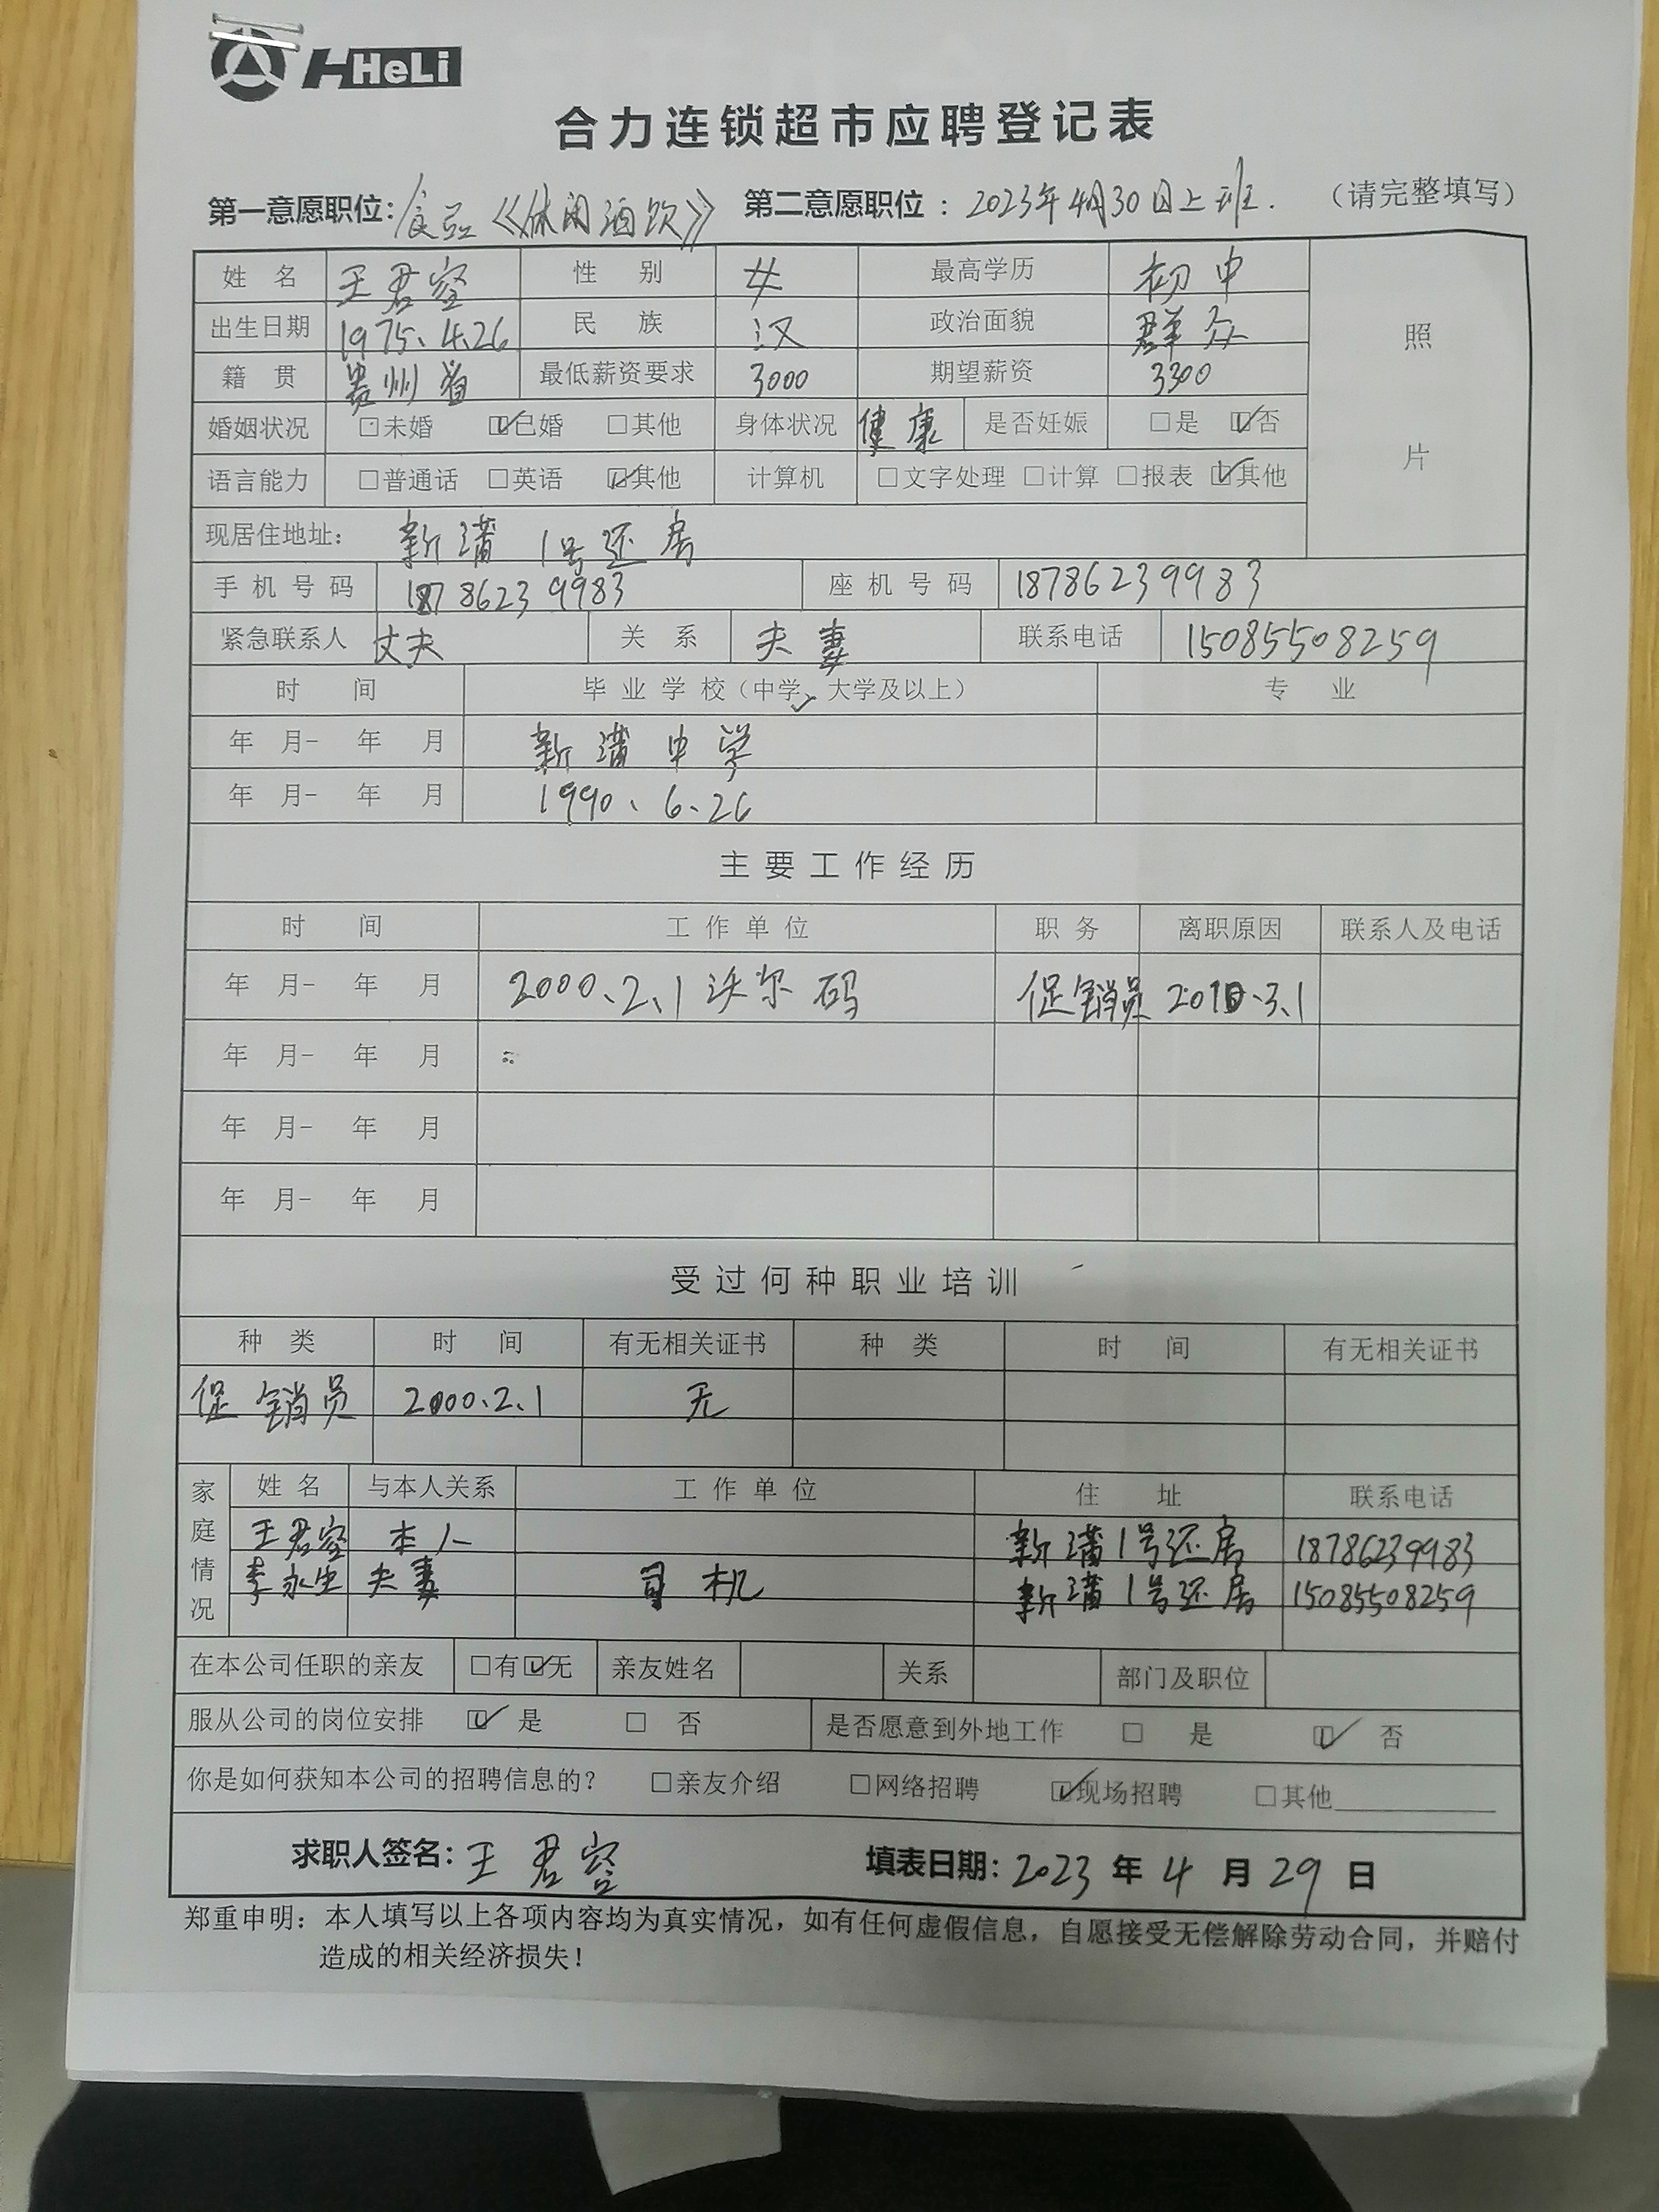 HeLi
合力连锁超市应聘登记表
第一意愿职位：食品《休闲酒饮》 第二意愿职位：2023年4月30日上班. （请完整填写）
姓 名 王君容 性 别 女 最高学历 初中
出生日期 1975、4.26 民 族 汉 政治面貌 群众 照
籍 贯 贵州省 最低薪资要求 3000 期望薪资 3300
婚姻状况 □未婚 ☑已婚 □其他 身体状况 健康 是否妊娠 □是 ☑否 片
语言能力 □普通话 □英语 ☑其他 计算机 □文字处理 □计算 □报表 ☑其他
现居住地址： 新蒲1号还房
手机号码 18786239983 座机号码 18786239983
紧急联系人 丈夫 关 系 夫妻 联系电话 15085508259
时 间 毕业学校（中学✓、大学及以上） 专 业
年 月- 年 月 新蒲中学
年 月- 年 月 1990、6、26
主要工作经历
时 间 工作单位 职务 离职原因 联系人及电话
年 月- 年 月 2000、2、1沃尔码 促销员 2010、3、1
年 月- 年 月
年 月- 年 月
年 月- 年 月
受过何种职业培训
种 类 时 间 有无相关证书 种 类 时 间 有无相关证书
促销员 2000.2、1 无
家庭情况 姓 名 与本人关系 工作单位 住 址 联系电话
王君容 本人 新蒲1号还房 18786239983
李永生 夫妻 司机 新蒲1号还房 15085508259
在本公司任职的亲友 □有☑无 亲友姓名 关系 部门及职位
服从公司的岗位安排 ☑ 是 □ 否 是否愿意到外地工作 □ 是 ☑ 否
你是如何获知本公司的招聘信息的？ □亲友介绍 □网络招聘 ☑现场招聘 □其他
求职人签名：王君容 填表日期：2023年4月29日
郑重申明：本人填写以上各项内容均为真实情况，如有任何虚假信息，自愿接受无偿解除劳动合同，并赔付
造成的相关经济损失！